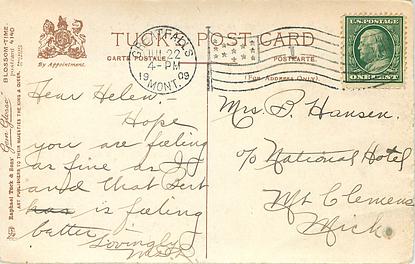 BLOSSOM-TIME.
By Appointment.
TUCK POST CARD
CARTE POSTALE
POSTKARTE.
(For Address Only)
GREAT FALLS
JUL 22
4-PM
19 09
MONT.
U.S. POSTAGE
ONE CENT
Raphael Tuck & Sons'
ART PUBLISHERS TO THEIR MAJESTIES THE KING & QUEEN.
Dear Helen:-
Hope
you are feeling
as fine as I
and that Bert
has is feeling
better.
Lovingly
Mrs. B. Hansen.
c/o National Hotel
Mt Clemens
Mich.